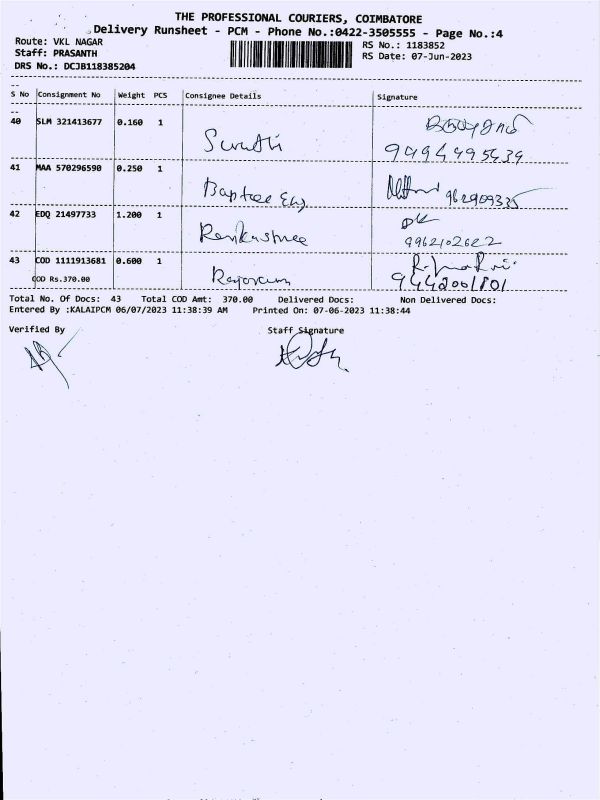 THE PROFESSIONAL COURIERS, COIMBATORE
Delivery Runsheet - PCM - Phone No.:0422-3505555 - Page No.:4
Route: VKL NAGAR
Staff: PRASANTH
DRS No.: DCJB118385204
RS No.: 1183852
RS Date: 07-Jun-2023
S No Consignment No Weight PCS Consignee Details Signature
40 SLM 321413677 0.160 1
9494495439
41 MAA 570296590 0.250 1
42 EDQ 21497733 1.200 1 Renkashree
43 COD 1111913681 0.600 1 Rajaram
COD Rs.370.00
9442001801
Total No. Of Docs: 43 Total COD Amt: 370.00 Delivered Docs: Non Delivered Docs:
Entered By :KALAIPCM 06/07/2023 11:38:39 AM Printed On: 07-06-2023 11:38:44
Verified By Staff Signature